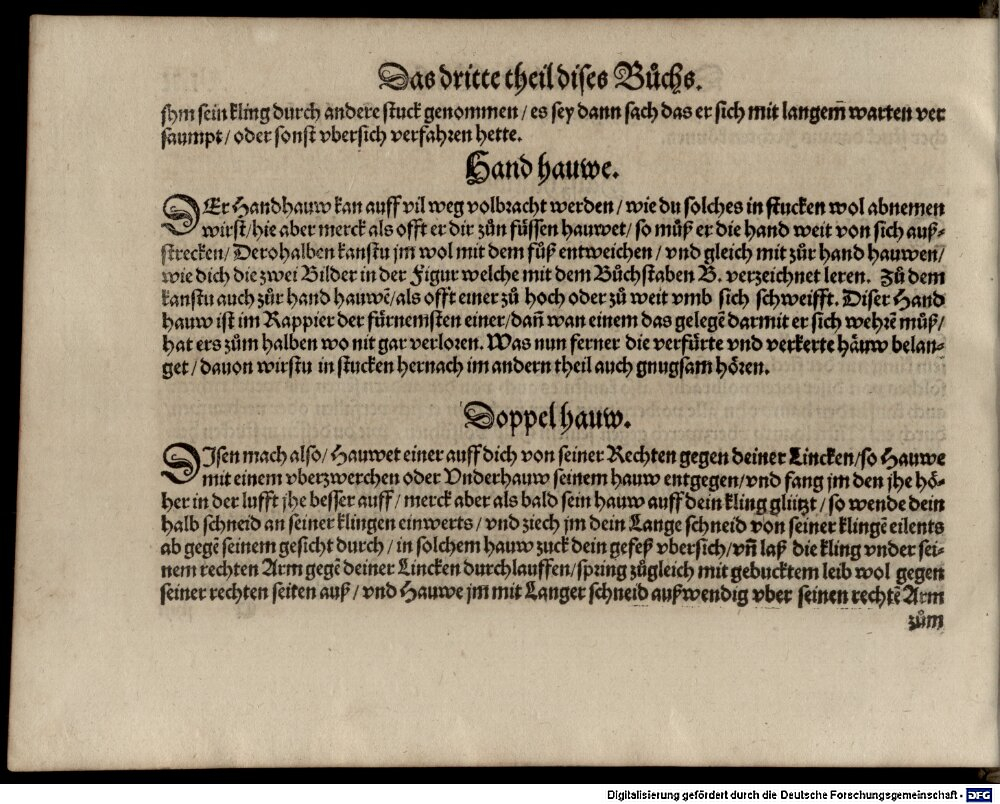 Das dritte theil dises Bůchs.
jhm sein kling durch andere stuck genommen / es sey dann sach das er sich mit langem̃ warten ver
saumpt / oder sonst vbersich verfahren hette.
Hand hauwe.
DEr Handhauw kan auff vil weg volbracht werden / wie du solches in stucken wol abnemen
wirst / hie aber merck als offt er dir zůn füssen hauwet / so můß er die hand weit von sich auß-
strecken / Derohalben kanstu jm wol mit dem fůß entweichen / vnd gleich mit zůr hand hauwen /
wie dich die zwei Bilder in der Figur welche mit dem Bůchstaben B. verzeichnet leren. Zů dem
kanstu auch zůr hand hauwẽ / als offt einer zů hoch oder zů weit vmb sich schweifft. Diser Hand
hauw ist im Rappier der fürnemsten einer / dañ wan einem das gelegẽ darmit er sich wehrẽ můß /
hat ers zům halben wo nit gar verloren. Was nun ferner die verfürte vnd verkerte häuw belan-
get / dauon wirstu in stucken hernach im andern theil auch gnugsam hören.
Doppel hauw.
DIsen mach also / Hauwet einer auff dich von seiner Rechten gegen deiner Lincken / so Hauwe
mit einem vberzwerchen oder Vnderhauw seinem hauw entgegen / vnd fang jm den jhe hö-
her in der lufft jhe besser auff / merck aber als bald sein hauw auff dein kling glützt / so wende dein
halb schneid an seiner klingen einwerts / vnd ziech jm dein Lange schneid von seiner klingẽ eilents
ab gegẽ seinem gesicht durch / in solchem hauw zuck dein gefeß vbersich / vñ laß die kling vnder sei-
nem rechten Arm gegẽ deiner Lincken durchlauffen / spring zůgleich mit gebucktem leib wol gegen
seiner rechten seiten auß / vnd Hauwe jm mit Langer schneid außwendig vber seinen rechtẽ Arm
zům
Digitalisierung gefördert durch die Deutsche Forschungsgemeinschaft - DFG